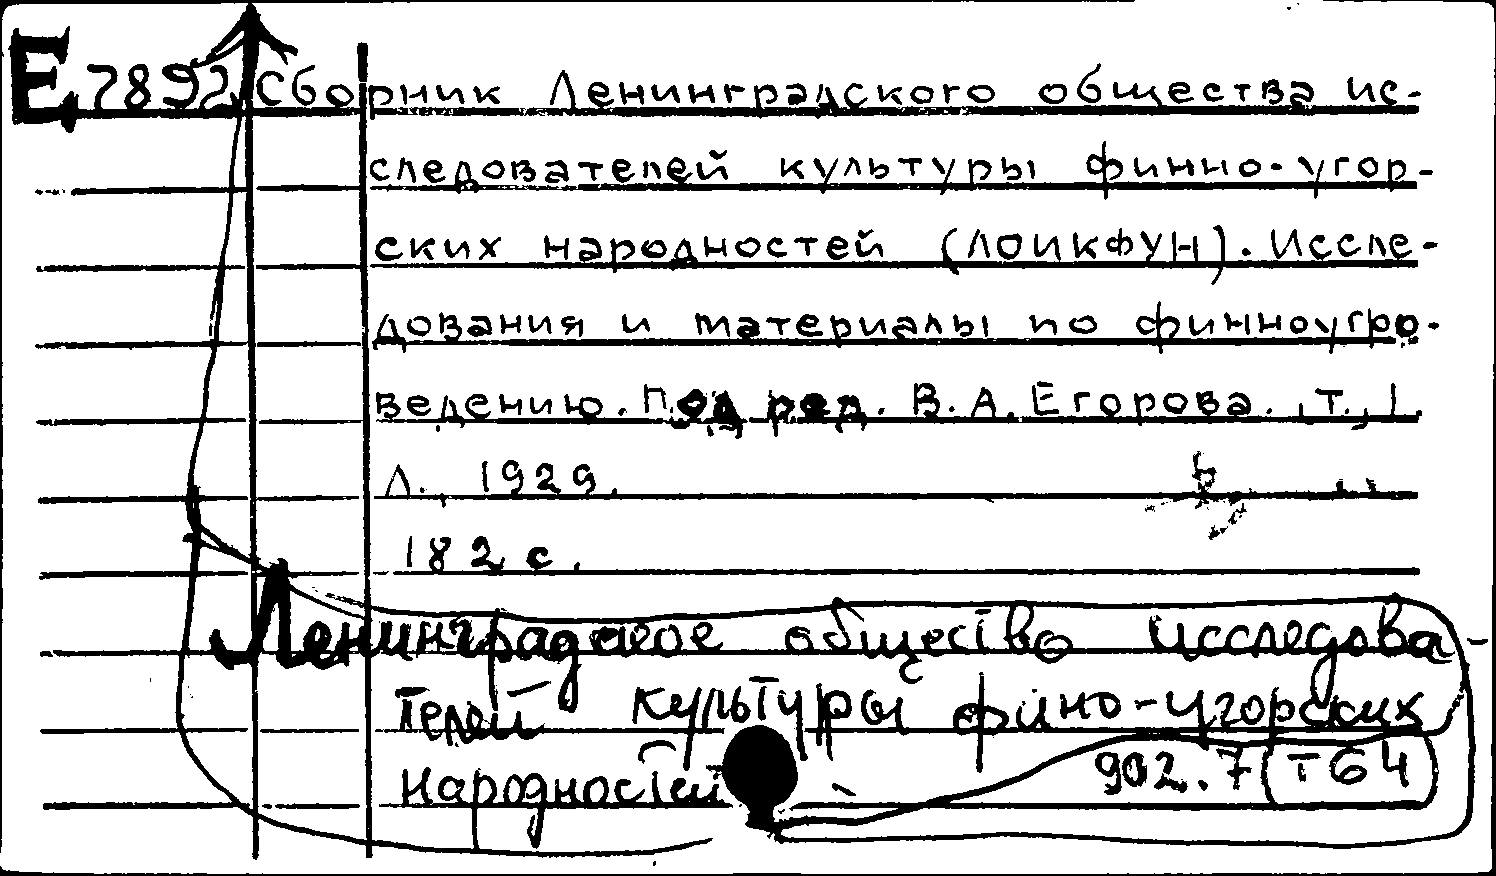 Е 7892 Сборник Ленинградского общества ис-
следователей культуры финно-угор-
ских народностей (ЛОИКФУН). Иссле-
дования и материалы по финноугро-
ведению. Под ред. В.А. Егорова. Т. 1.
Л., 1929.
182 с.
Ленинградское общество исследова-
телей культуры фино-угорских
народностей
902.7 (Т64)